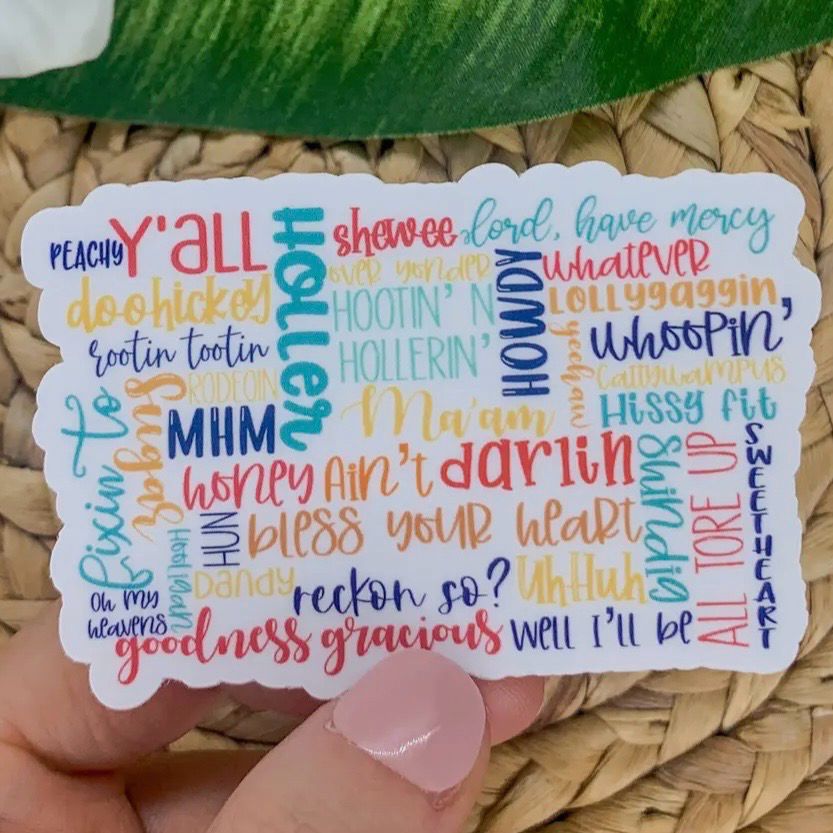 PEACHY
Y'ALL
HOLLER
shewee
lord, have mercy
doohickey
over yonder
HOWDY
whatever
HOOTIN' N
HOLLERIN'
LOLLYgaggin'
rootin tootin
yeehaw
whoopin'
RODEOIN
cattywampus
fixin to
sugar
MHM
Ma'am
Hissy fit
honey
Ain't
darlin
shindig
ALL TORE UP
SWEETHEART
HUN
bless your heart
Hooligan
Dandy
reckon so?
UhHuh
Oh my
heavens
goodness gracious
well I'll be